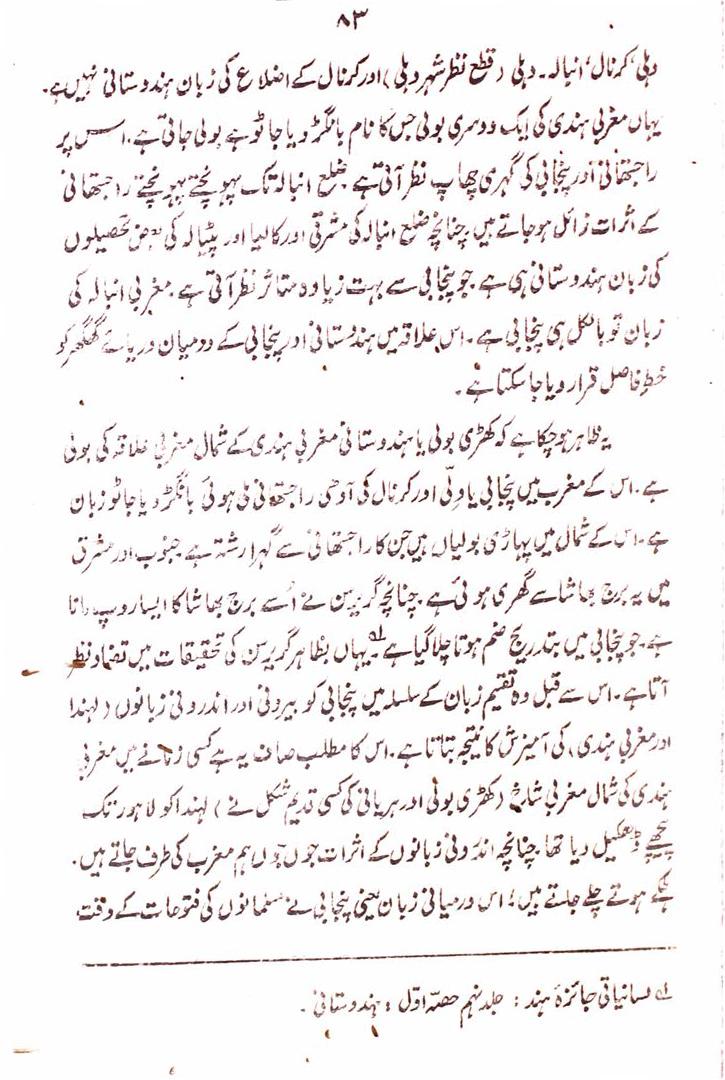 ۸۳
دہلی، کرنال، انبالہ۔ دہلی (قطع نظر شہر دہلی) اور کرنال کے اضلاع کی زبان ہندوستانی نہیں ہے۔
یہاں مغربی ہندی کی ایک دوسری بولی جس کا نام بانگڑو یا جاٹو ہے بولی جاتی ہے۔ اس پر
راجستھانی اور پنجابی کی گہری چھاپ نظر آتی ہے۔ ضلع انبالہ تک پہونچتے پہونچتے راجستھانی
کے اثرات زائل ہو جاتے ہیں۔ چنانچہ ضلع انبالہ کی مشرقی اور کالسیا اور پٹیالہ کی بعض تحصیلوں
کی زبان ہندوستانی ہی ہے جو پنجابی سے بہت زیادہ متاثر نظر آتی ہے۔ مغربی انبالہ کی
زبان تو بالکل ہی پنجابی ہے۔ اس علاقہ میں ہندوستانی اور پنجابی کے درمیان دریائے گھگھر کو
خطِ فاصل قرار دیا جا سکتا ہے۔
یہ ظاہر ہو چکا ہے کہ کھڑی بولی یا ہندوستانی مغربی ہندی کے شمال مغربی علاقہ کی بولی
ہے۔ اس کے مغرب میں پنجابی یا دلّی اور کرنال کی آدھی راجستھانی ملی ہوئی بانگڑو یا جاٹو زبان
ہے۔ اس کے شمال میں پہاڑی بولیاں ہیں جن کا راجستھانی سے گہرا رشتہ ہے جنوب اور مشرق
میں یہ برج بھاشا سے گھری ہوئی ہے۔ چنانچہ گریرسن نے اُسے برج بھاشا کا ایسا روپ مانا
ہے۔ جو پنجابی میں بتدریج ضم ہوتا چلا گیا ہے لہ یہاں بظاہر گریرسن کی تحقیقات میں تضاد نظر
آتا ہے۔ اس سے قبل وہ تقسیم زبان کے سلسلہ میں پنجابی کو بیرونی اور اندرونی زبانوں (لہندا
اور مغربی ہندی) کی آمیزش کا نتیجہ بتاتا ہے۔ اس کا مطلب صاف یہ ہے کسی زمانے میں مغربی
ہندی کی شمال مغربی شاخ (کھڑی بولی اور ہریانی کی کسی قدیم شکل نے) لہندا کو لاہور تک
پیچھے ڈھکیل دیا تھا۔ چنانچہ اندرونی زبانوں کے اثرات جوں جوں ہم مغرب کی طرف جاتے ہیں۔
ہلکے ہوتے چلے جاتے ہیں؛ اس درمیانی زبان یعنی پنجابی نے مسلمانوں کی فتوحات کے وقت
لہ لسانیاتی جائزۂ ہند: جلد نہم حصّہ اوّل: ہندوستانی۔